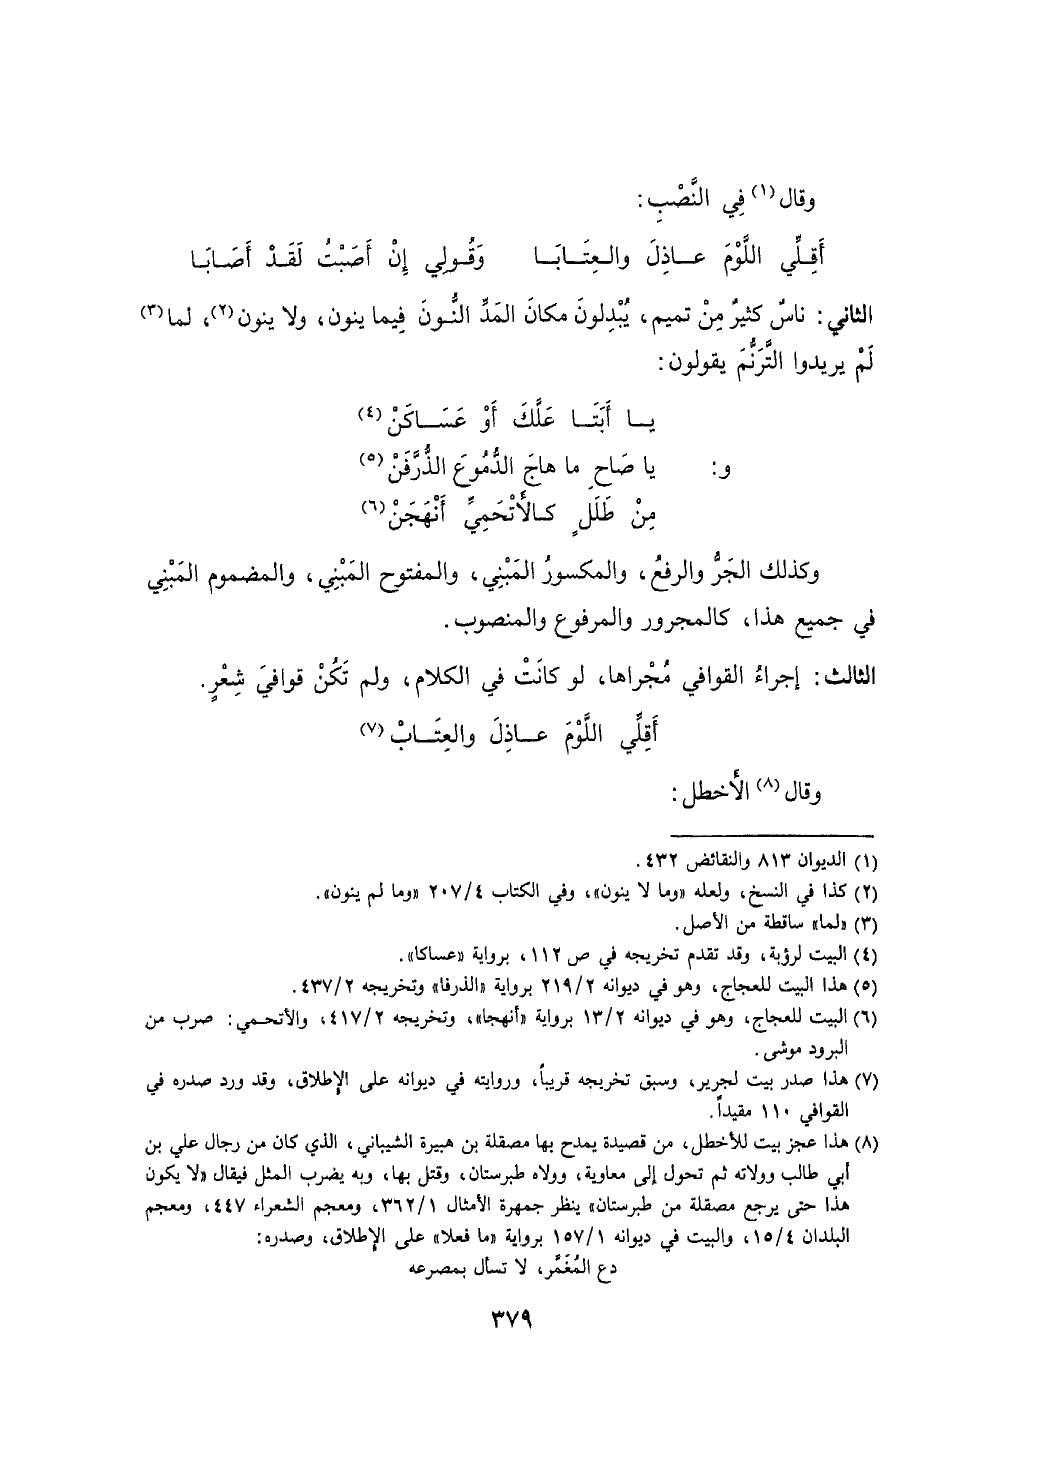 وقال(١) فِي النَّصْبِ:
أَقِـلِّي اللَّوْمَ عـــاذِلَ والـعِتَــابَــا وَقُـولِي إِنْ أَصَبْتُ لَقَـدْ أَصَـابَـا
الثاني: ناسٌ كثيرٌ مِنْ تميم، يُبْدِلونَ مكانَ المَدِّ النُّـونَ فِيما ينون، ولا ينون(٢)، لما(٣)
لَمْ يريدوا التَّرَنُّمَ يقولون:
يــا أَبَتَــا عَلَّكَ أَوْ عَسَــاكَنْ(٤)
و: يا صَاحِ ما هاجَ الدُّمُوعَ الذُّرَّفَنْ(٥)
مِنْ طَلَلٍ كـالأَتْحَمِيِّ أَنْهَجَنْ(٦)
وكذلك الجَرُّ والرفعُ، والمكسورُ المَبْنِي، والمفتوح المَبْنِي، والمضموم المَبْنِي
في جميع هذا، كالمجرور والمرفوع والمنصوب.
الثالث: إجراءُ القوافي مُجْراها، لو كانَتْ في الكلام، ولم تَكُنْ قوافيَ شِعْرٍ.
أَقِلِّي اللَّوْمَ عـــاذِلَ والعِتَــابْ(٧)
وقال(٨) الأَخطل:
(١) الديوان ٨١٣ والنقائض ٤٣٢.
(٢) كذا في النسخ، ولعله «وما لا ينون»، وفي الكتاب ٢٠٧/٤ «وما لم ينون».
(٣) «لما» ساقطة من الأصل.
(٤) البيت لرؤبة، وقد تقدم تخريجه في ص ١١٢، برواية «عساكا».
(٥) هذا البيت للعجاج، وهو في ديوانه ٢١٩/٢ برواية «الذرفا» وتخريجه ٤٣٧/٢.
(٦) البيت للعجاج، وهو في ديوانه ١٣/٢ برواية «أنهجا»، وتخريجه ٤١٧/٢، والأتحـمي: صرب من
البرود موشى.
(٧) هذا صدر بيت لجرير، وسبق تخريجه قريباً، وروايته في ديوانه على الإطلاق، وقد ورد صدره في
القوافي ١١٠ مقيداً.
(٨) هذا عجز بيت للأخطل، من قصيدة يمدح بها مصقلة بن هبيرة الشيباني، الذي كان من رجال علي بن
أبي طالب وولاته ثم تحول إلى معاوية، وولاه طبرستان، وقتل بها، وبه يضرب المثل فيقال «لا يكون
هذا حتى يرجع مصقلة من طبرستان» ينظر جمهرة الأمثال ٣٦٢/١، ومعجم الشعراء ٤٤٧، ومعجم
البلدان ١٥/٤، والبيت في ديوانه ١٥٧/١ برواية «ما فعلا» على الإطلاق، وصدره:
دع المُغَمَّر، لا تسأل بمصرعه
٣٧٩